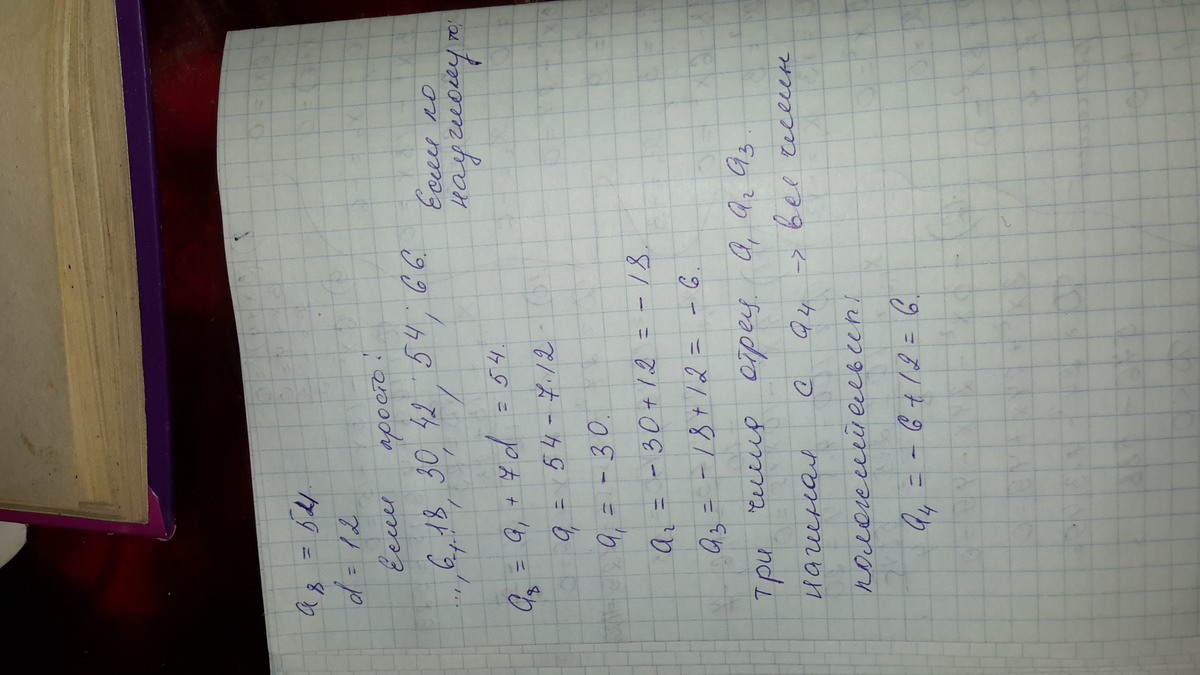 a₈ = 54.
d = 12
Если просто:
..., 6, 18, 30, 42, 54, 66.
Если по
научному то:
a₈ = a₁ + 7d = 54.
a₁ = 54 - 7·12
a₁ = - 30.
a₂ = - 30 + 12 = - 18.
a₃ = - 18 + 12 = - 6.
три числа отрец. a₁ a₂ a₃.
начиная с a₄ → все числен
a₄ = - 6 + 12 = 6.